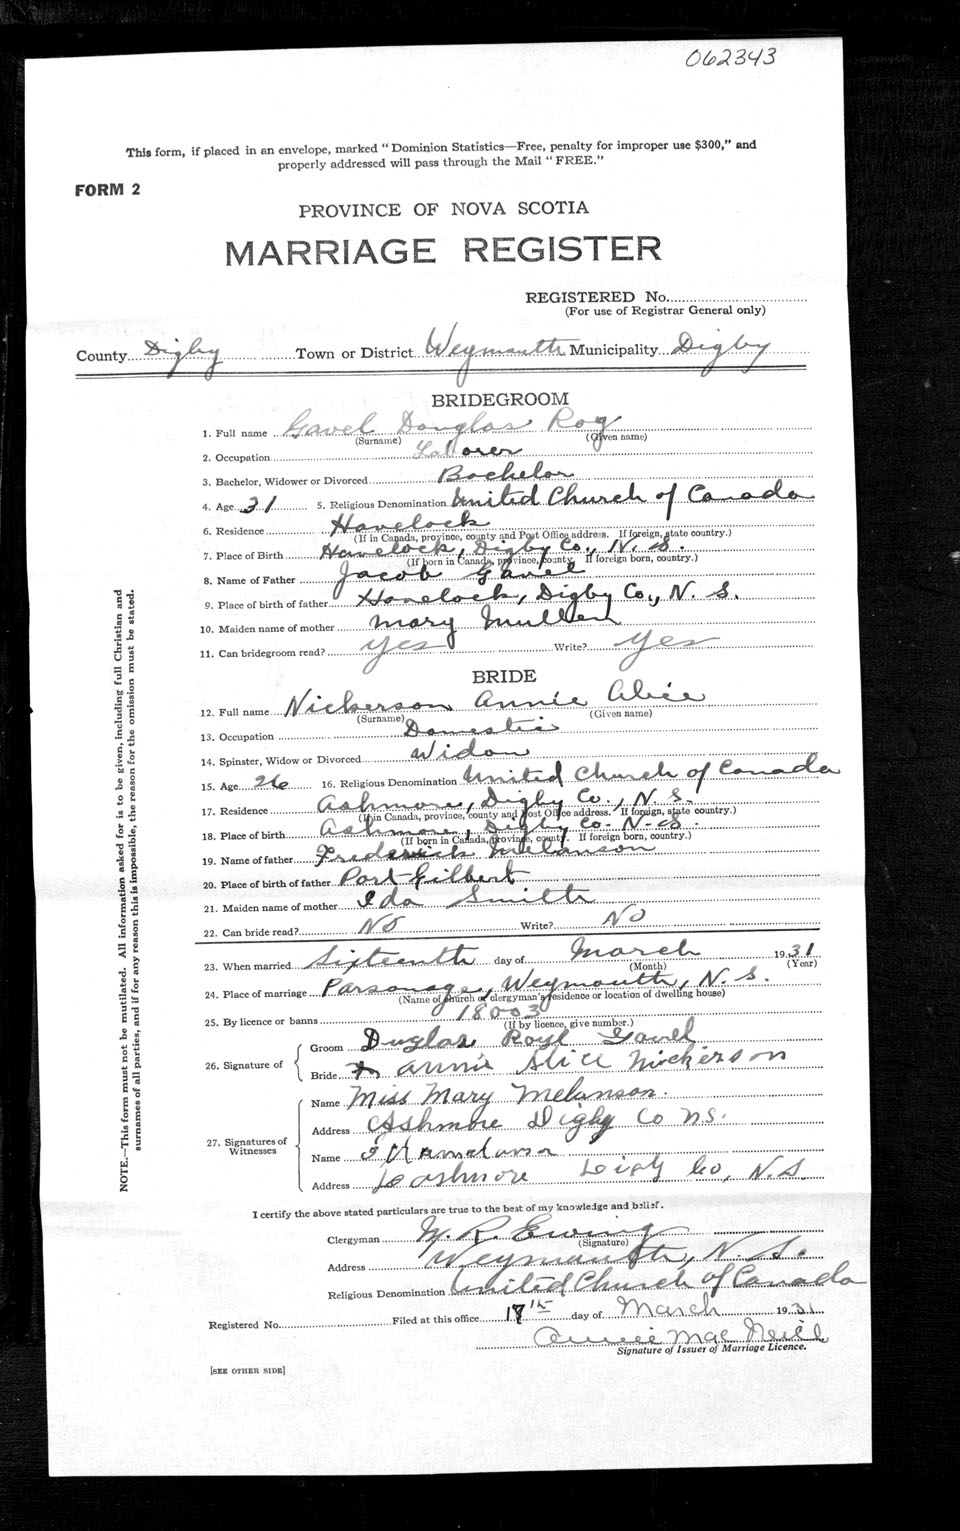 062343
This form, if placed in an envelope, marked "Dominion Statistics—Free, penalty for improper use $300," and
properly addressed will pass through the Mail "FREE."
FORM 2
PROVINCE OF NOVA SCOTIA
MARRIAGE REGISTER
REGISTERED No.
(For use of Registrar General only)
County Digby Town or District Weymouth Municipality Digby
BRIDEGROOM
1. Full name Gavel Douglas Roy
(Surname) (Given name)
2. Occupation Laborer
3. Bachelor, Widower or Divorced Bachelor
4. Age 31 5. Religious Denomination United Church of Canada
6. Residence Havelock
(If in Canada, province, county and Post Office address. If foreign, state country.)
7. Place of Birth Havelock, Digby Co., N. S.
(If born in Canada, province, county. If foreign born, country.)
8. Name of Father Jacob Gavel
9. Place of birth of father Havelock, Digby Co., N. S.
10. Maiden name of mother Mary Mullen
11. Can bridegroom read? Yes Write? Yes
BRIDE
12. Full name Nickerson Annie Alice
(Surname) (Given name)
13. Occupation Domestic
14. Spinster, Widow or Divorced Widow
15. Age 26 16. Religious Denomination United Church of Canada
17. Residence Ashmore, Digby Co., N. S.
(If in Canada, province, county and Post Office address. If foreign, state country.)
18. Place of birth Ashmore, Digby Co. N. S.
(If born in Canada, province, county. If foreign born, country.)
19. Name of father Frederick Melanson
20. Place of birth of father Port Gilbert
21. Maiden name of mother Ida Smith
22. Can bride read? No Write? No
23. When married Sixteenth day of March 1931
(Month) (Year)
24. Place of marriage Parsonage, Weymouth, N. S.
(Name of church or clergyman's residence or location of dwelling house)
25. By licence or banns 18003
(If by licence, give number.)
26. Signature of
Groom Duglas Royl Gavel
Bride Annie Alice Nickerson
27. Signatures of
Witnesses
Name Miss Mary Melanson.
Address Ashmore Digby Co N.S.
Name
Address Ashmore Co, N.S
I certify the above stated particulars are true to the best of my knowledge and belief.
Clergyman M. R. Ewing
(Signature)
Address Weymouth, N. S.
Religious Denomination United Church of Canada
Registered No. Filed at this office 17th day of March 1931
Annie MacNeill
Signature of Issuer of Marriage Licence.
[SEE OTHER SIDE]
NOTE.—This form must not be mutilated. All information asked for is to be given, including full Christian and
surnames of all parties, and if for any reason this is impossible, the reason for the omission must be stated.